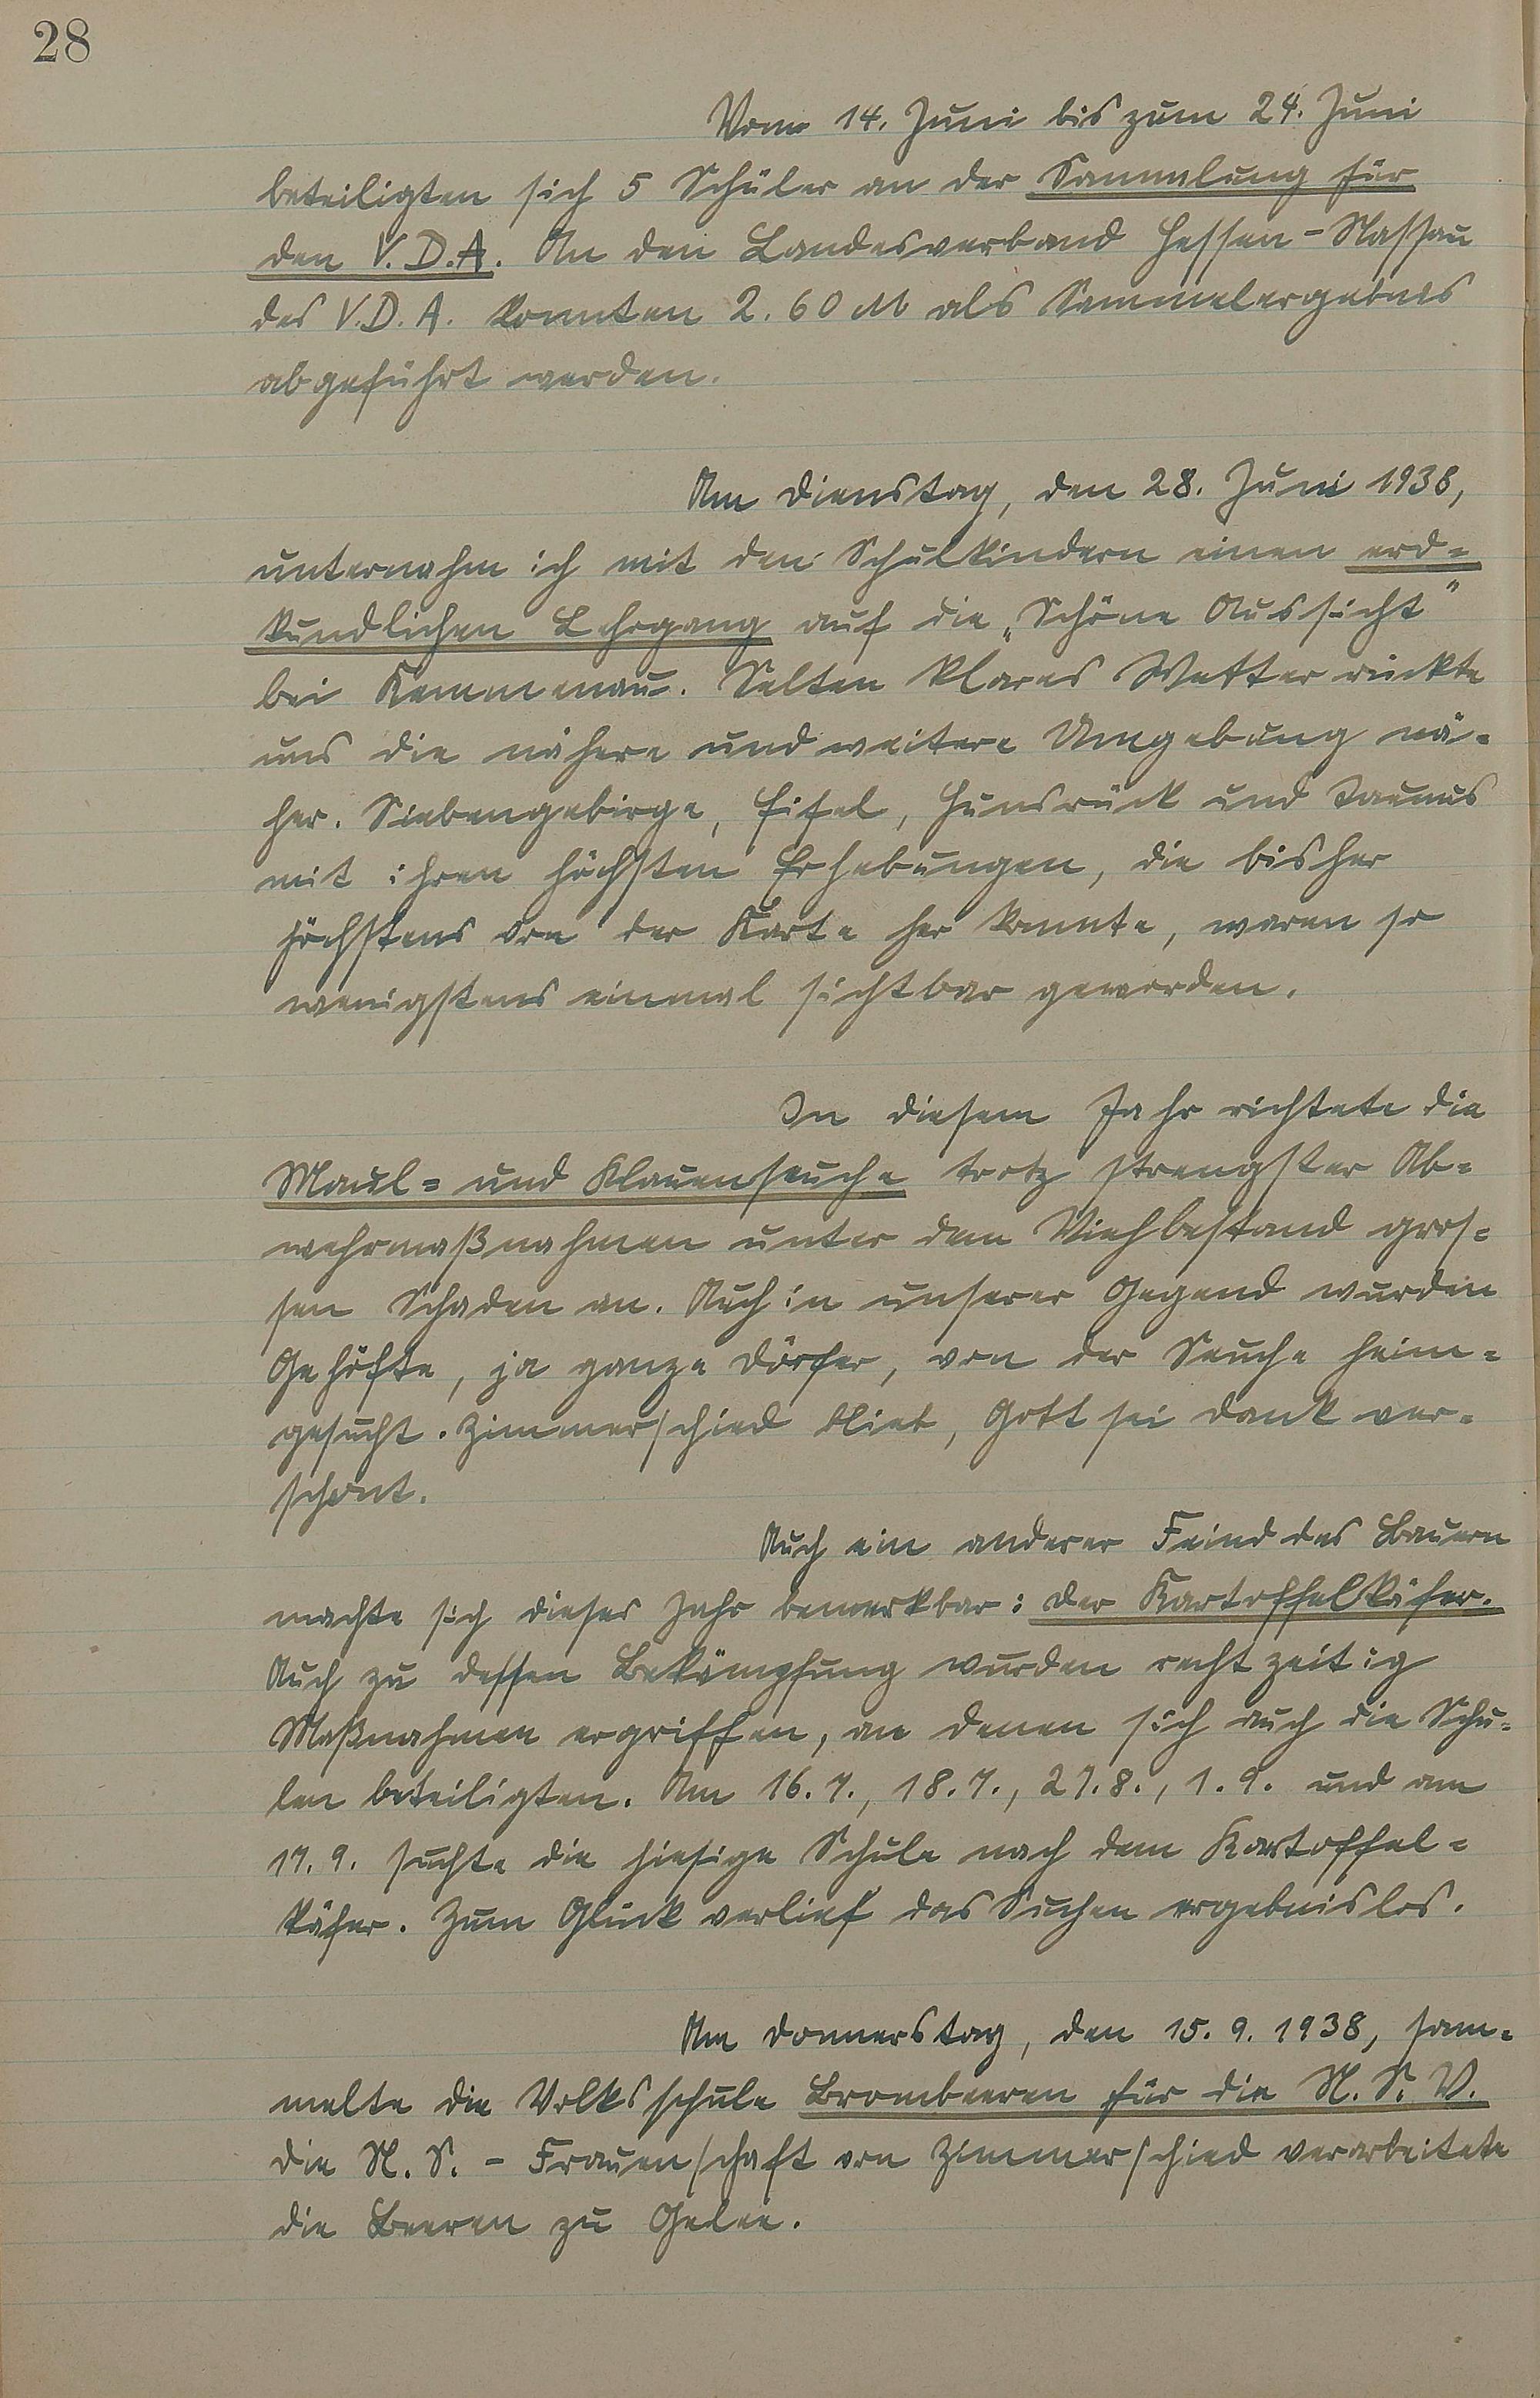 28
Vom 14. Juni bis zum 24. Juni
beteiligten sich 5 Schüler an der Sammlung für
den V.D.A. An den Landesverband Hessen-Nassau
des V.D.A. konnten 2.60 M als Sammelergebnis
abgeführt werden.
Am Dienstag, den 28. Juni 1938,
unternahm ich mit den Schulkindern einen erd=
kundlichen Lehrgang auf die „Schöne Aussicht"
bei Kemmenau. Selten klares Wetter rückte
uns die nähere und weitere Umgebung nä=
her. Siebengebirge, Eifel, Hunsrück und Taunus
mit ihren höchsten Erhebungen, die bisher
höchstens von der Karte her kannte, waren so
wenigstens einmal sichtbar geworden.
In diesem Jahr richtete die
Maul= und Klauenseuche trotz strengster Ab=
wehrmaßnahmen unter dem Viehbestand gros=
sen Schaden an. Auch in unserer Gegend wurden
Gehöfte, ja ganze Dörfer, von der Seuche heim=
gesucht. Zimmerschied blieb, Gott sei Dank ver=
schont.
Auch ein anderer Feind des Bauern
machte sich dieses Jahr bemerkbar: der Kartoffelkäfer.
Auch zu dessen Bekämpfung wurden rechtzeitig
Maßnahmen ergriffen, an denen sich auch die Schu=
len beteiligten. Am 16.7., 18.7., 27.8., 1.9. und am
17.9. suchte die hiesige Schule nach dem Kartoffel=
käfer. Zum Glück verlief das Suchen ergebnislos.
Am Donnerstag, den 15.9.1938, sam=
melte die Volksschule Brombeeren für die N.S.V.
Die N.S.-Frauenschaft von Zimmerschied verarbeitete
die Beeren zu Gelee.